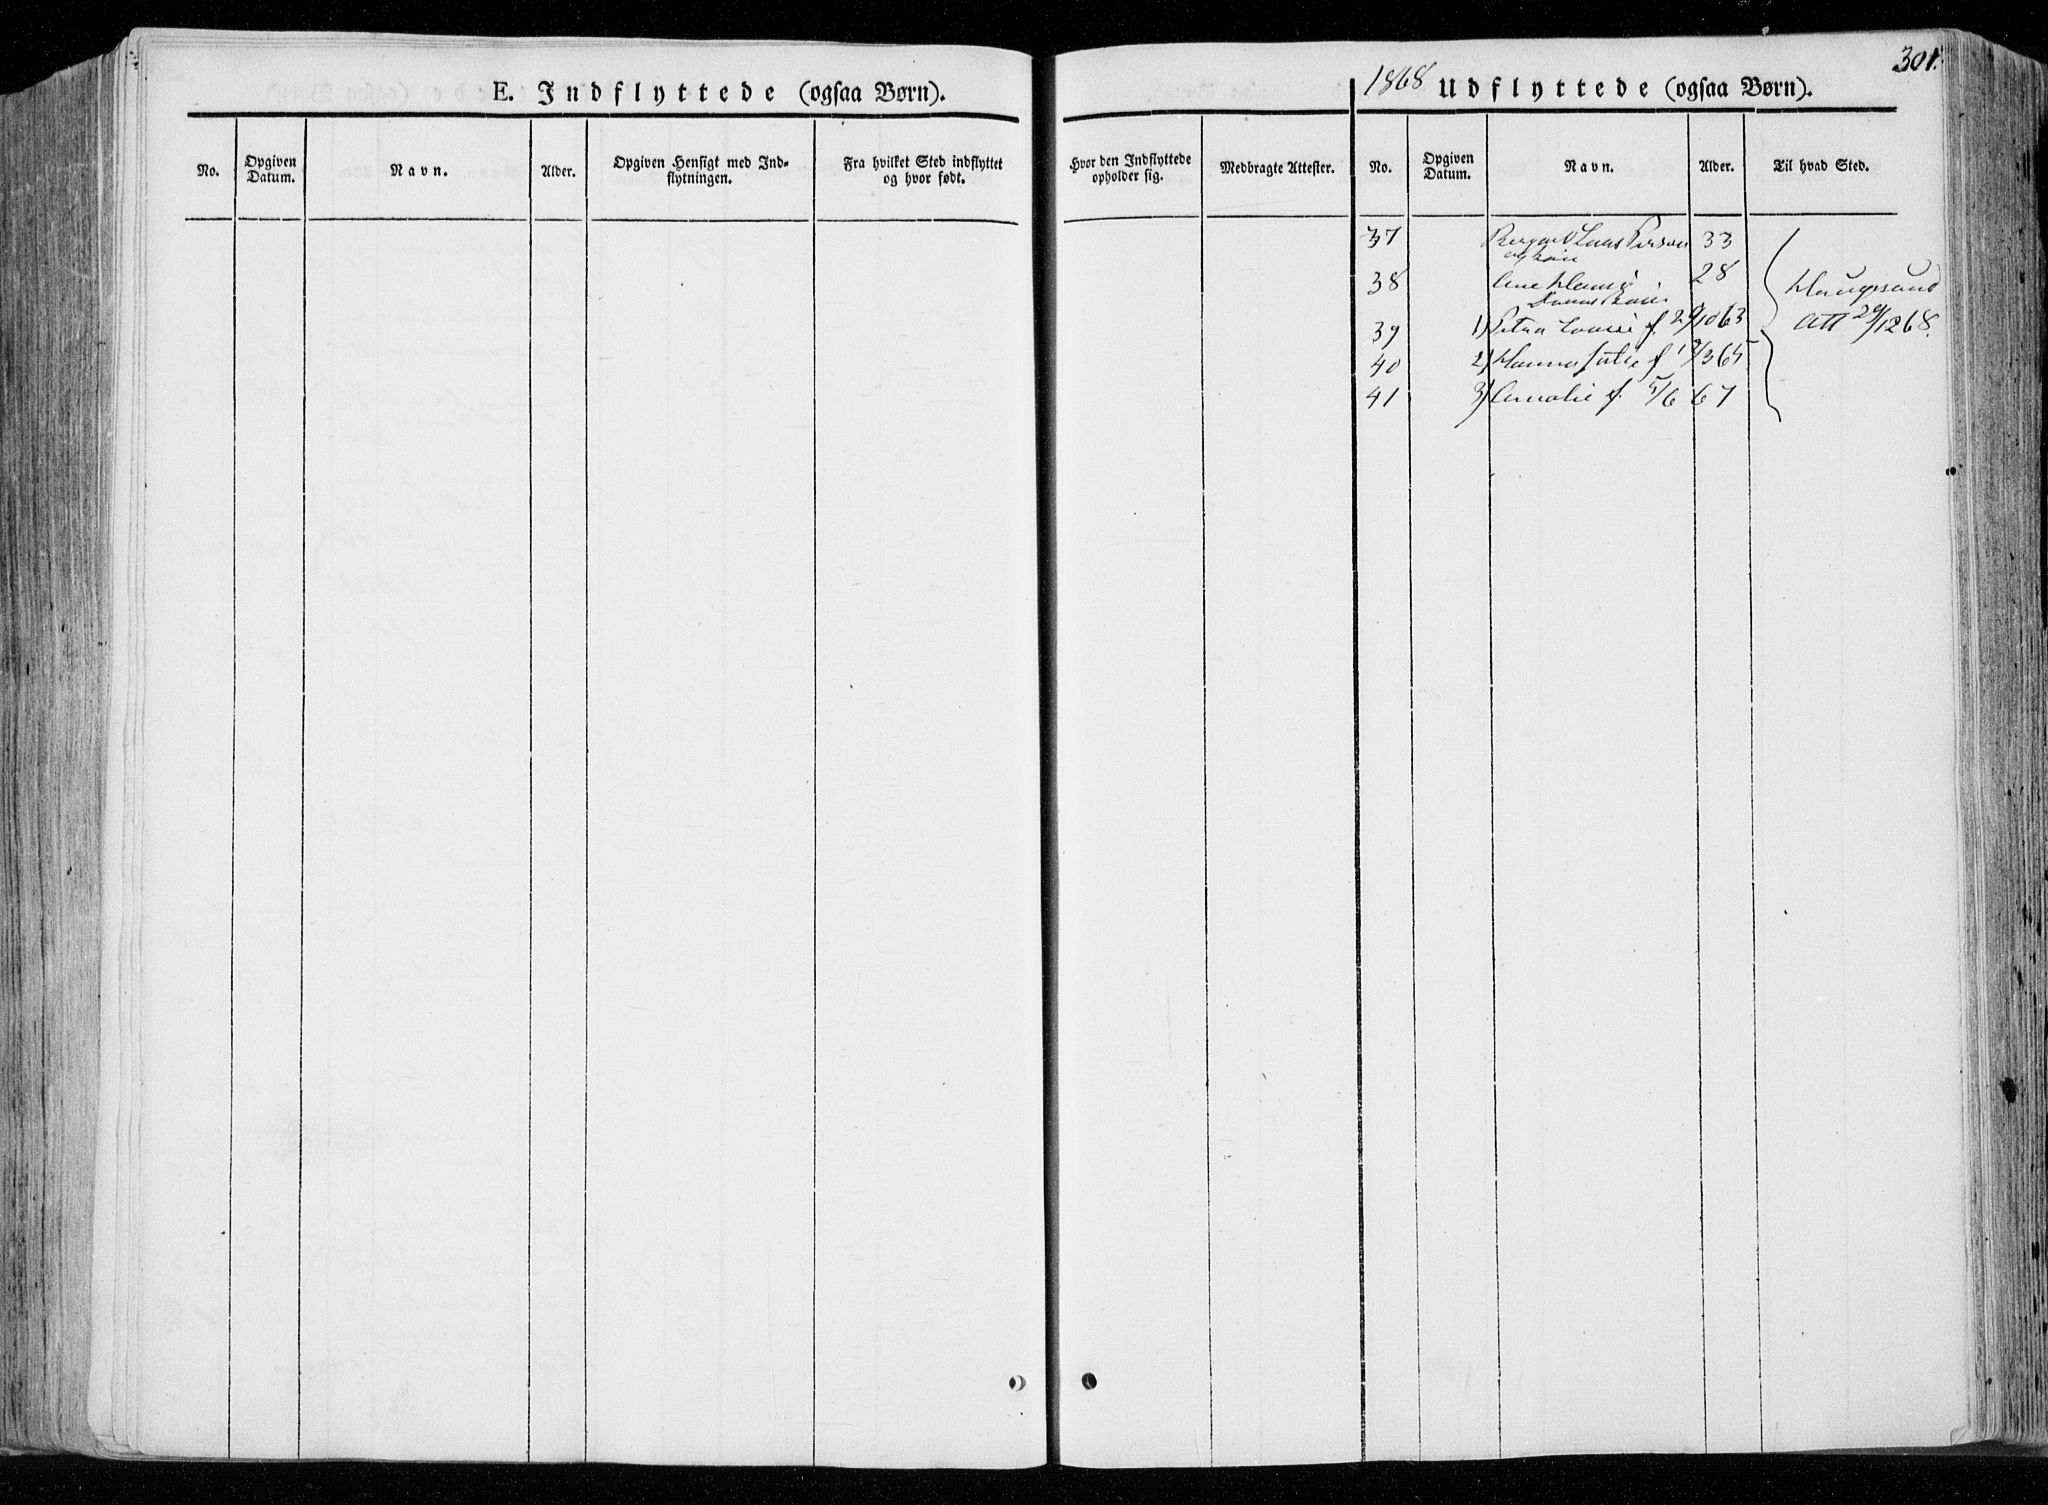 301.
E. Indflyttede (ogsaa Børn).
1868 Udflyttede (ogsaa Børn).
No.
Opgiven Datum.
Navn.
Alder.
Opgiven Hensigt med Ind=
flytningen.
Fra hvilket Sted indflyttet
og hvor født.
Hvor den Indflyttede
opholder sig.
Medbragte Attester.
No.
Opgiven
Datum.
Navn.
Alder.
Til hvad Sted.
37 33
og
38 Ane 28
39 1) Petra f. 29/10 63
40 2) Hanna Julie f 1 /3 65
41 3) Amalie f. 5/6 67
Haugesund
Att 29/12 68.